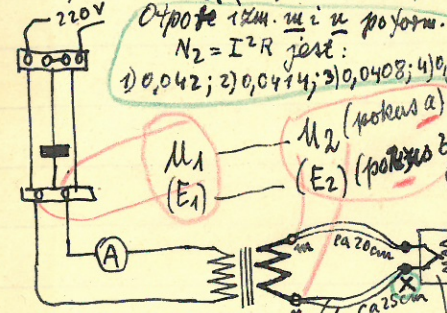 220V
Otpor izm. m i n poform.
N₂ = I²R jest:
1) 0,042; 2) 0,0414; 3) 0,0408; 4) 0,
M₁ M₂ (pokus a)
(E₁) (E₂) (pokus
A
m ca 20cm
m ca 25cm